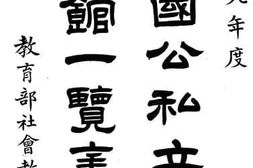 年度
國公私立
館一覽表
教育部社會教